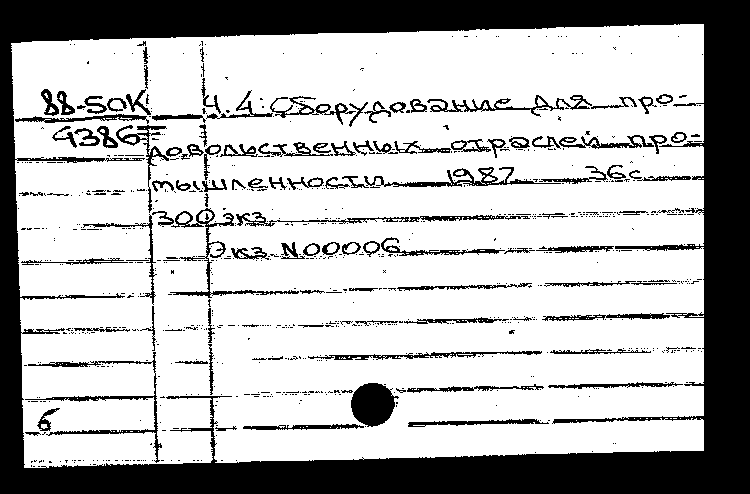 88-5ОК Ч.4: Оборудование для про-
9386 довольственных отраслей про-
мышленности 1987 36с.
300 экз
Экз N00006
б